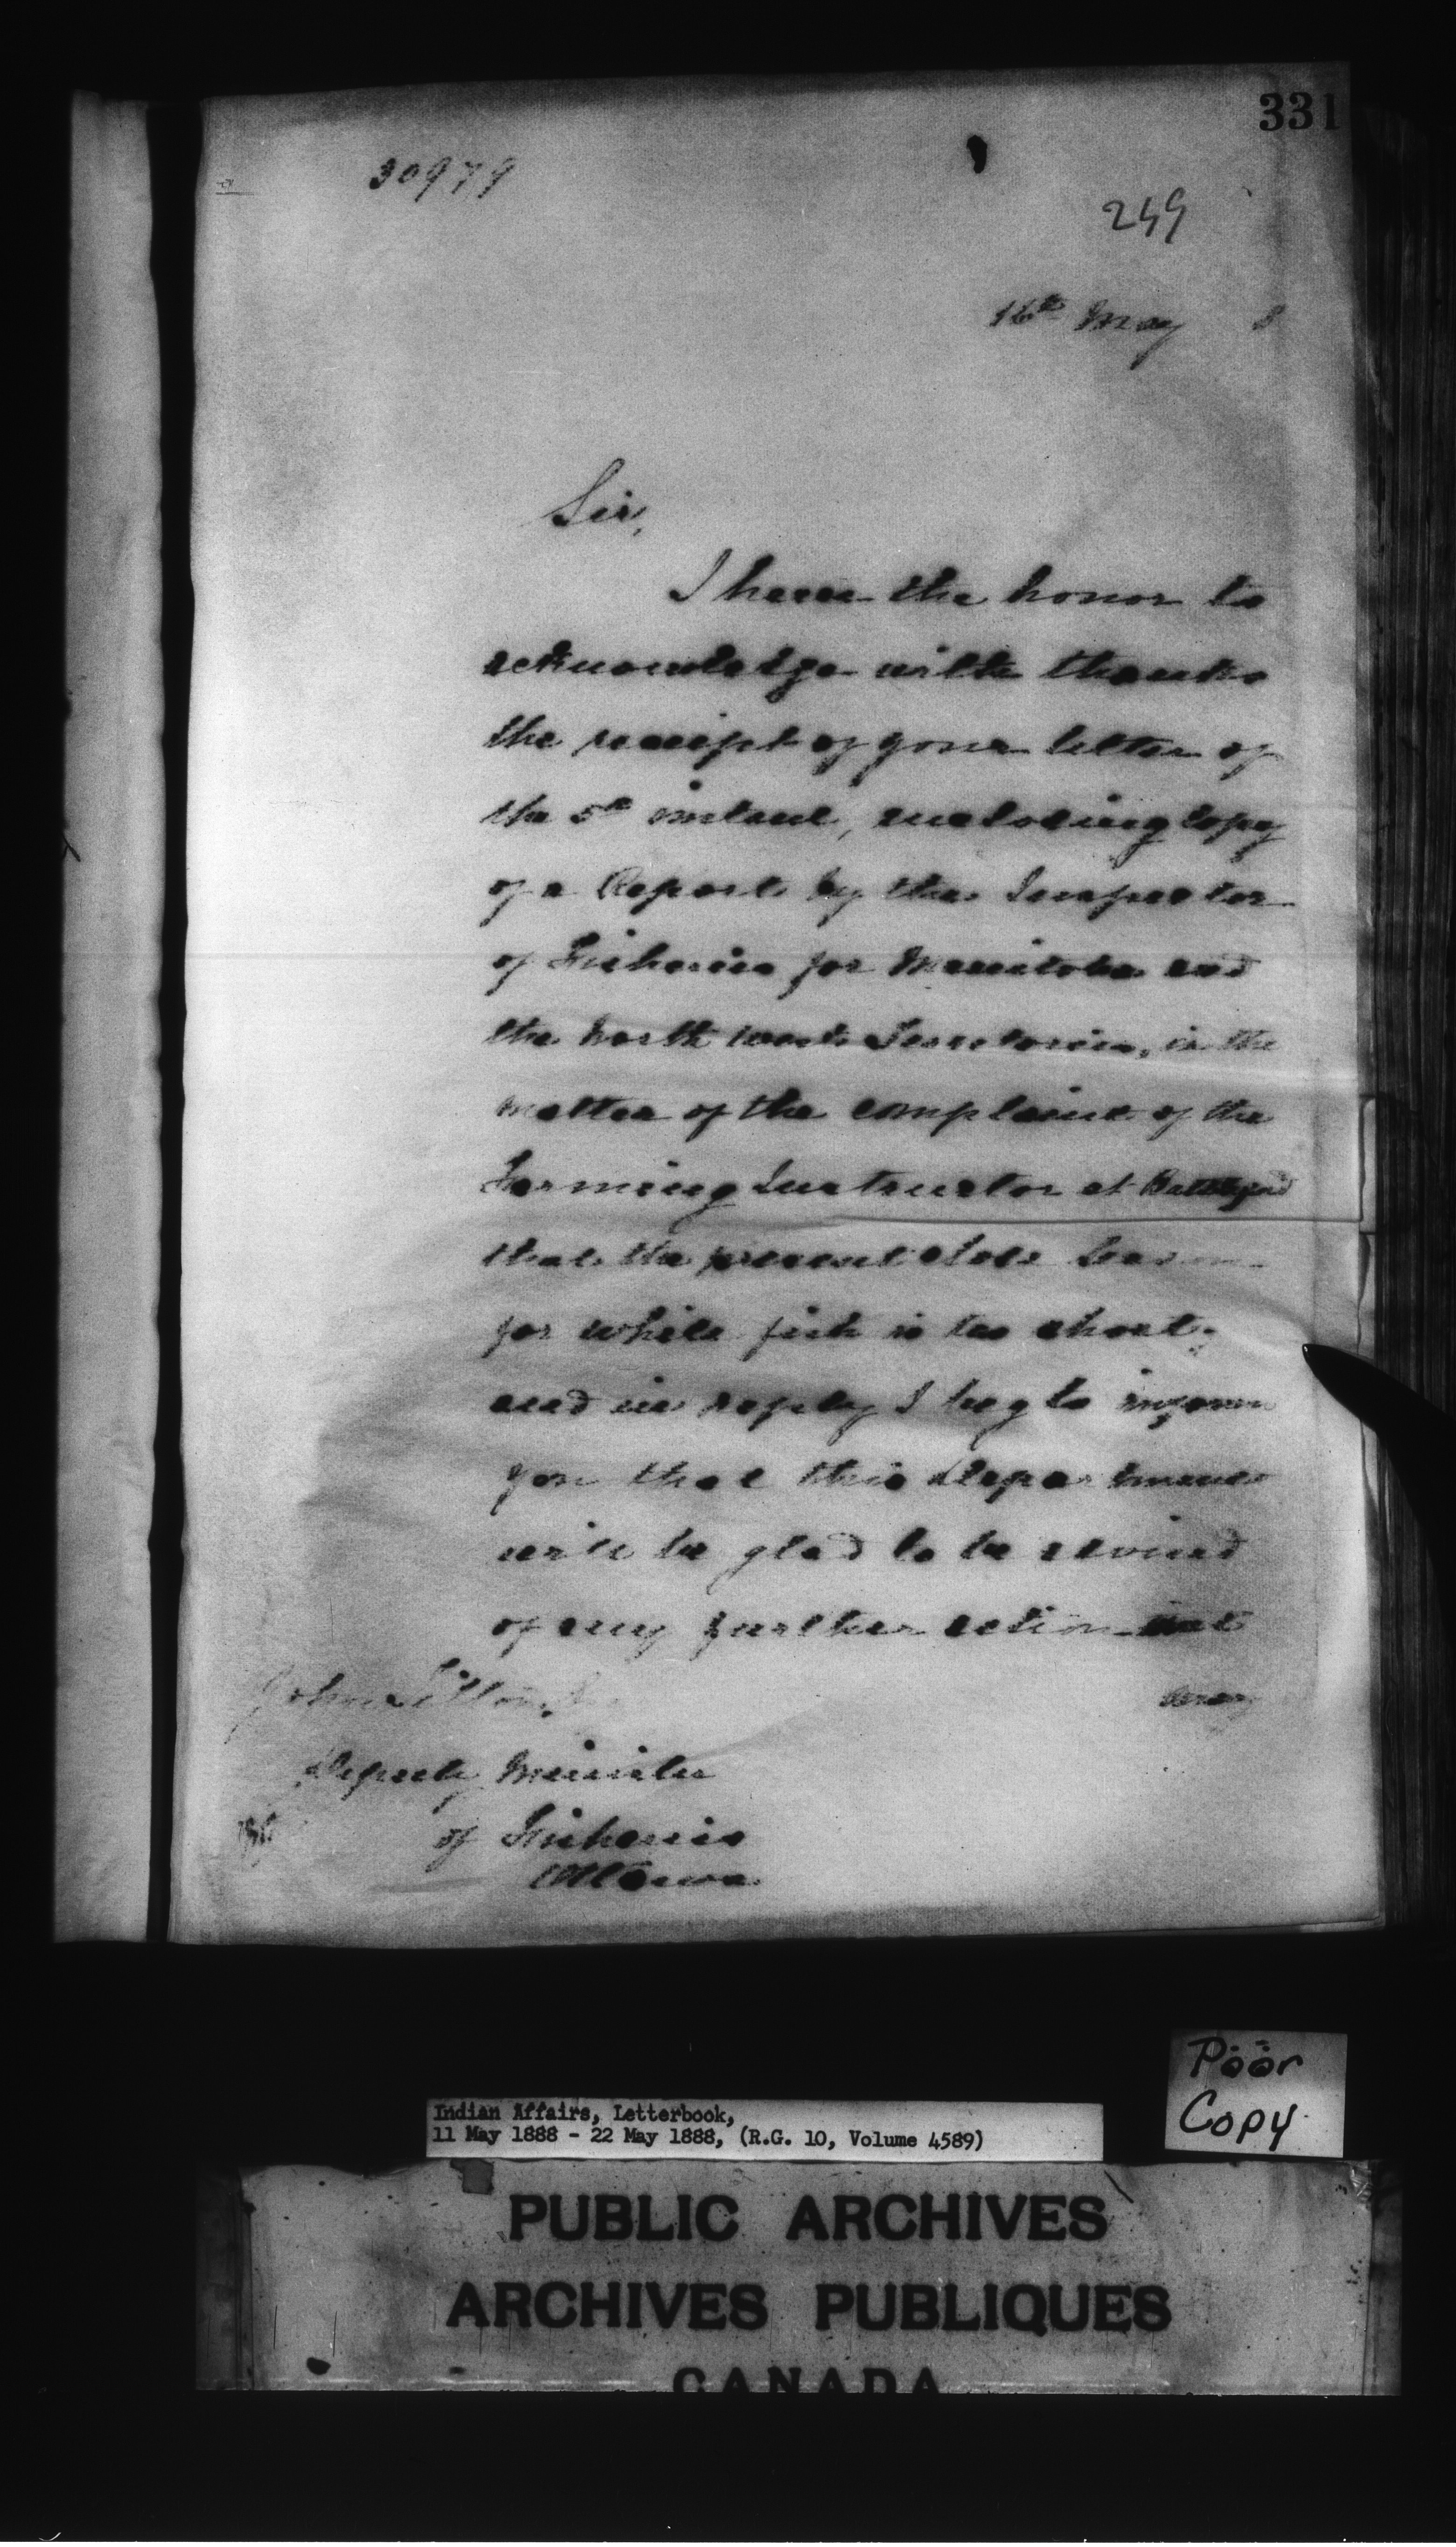 331
30979
249
16th May 8
Sir,
I have the honor to
acknowledge with thanks
the receipt of your letter of
the 5th instant, enclosing copy
of a Report by the Inspector
of Fisheries for Manitoba and
the North West Territories, in the
matter of the complaint of the
Farming Instructor at Battleford
that the present close season
for white fish is too short;
and in reply I beg to inform
you that this Department
will be glad to be advised
of any further action that
may
John Tilton
Deputy Minister
of Fisheries
Ottawa
Poor
Copy
Indian Affairs, Letterbook,
11 May 1888 - 22 May 1888, (R.G. 10, Volume 4589)
PUBLIC ARCHIVES
ARCHIVES PUBLIQUES
CANADA